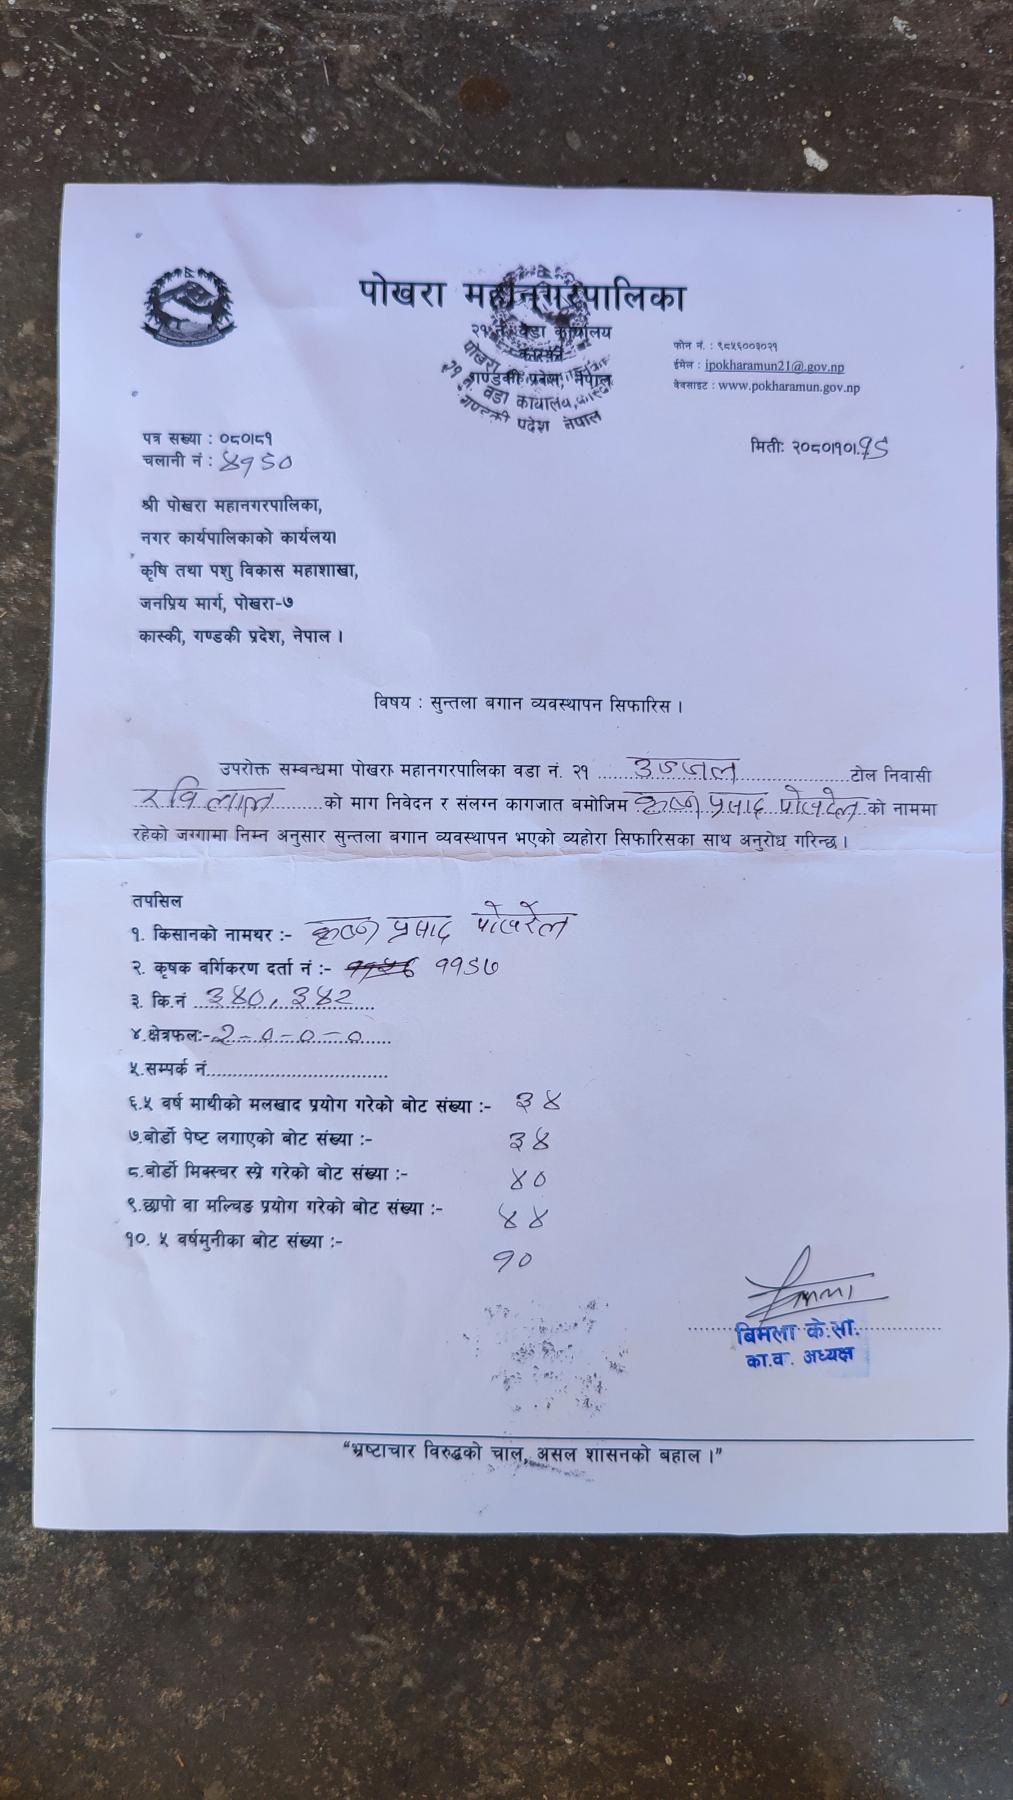 पोखरा महानगरपालिका
२१ नं. वडा कार्यालय
कास्की
गण्डकी प्रदेश, नेपाल
फोन नं. : ९८५६००३०२१
ईमेल : ipokharamun21@.gov.np
वेवसाइट : www.pokharamun.gov.np
पोखरा
२१ नं. वडा कार्यालय, कास्की
गण्डकी प्रदेश नेपाल
पत्र सख्या : ०८०।८१
चलानी नं : ४१८०
मिती: २०८०।१०।१८
श्री पोखरा महानगरपालिका,
नगर कार्यपालिकाको कार्यलय।
कृषि तथा पशु विकास महाशाखा,
जनप्रिय मार्ग, पोखरा-७
कास्की, गण्डकी प्रदेश, नेपाल ।
विषय : सुन्तला बगान व्यवस्थापन सिफारिस ।
उपरोक्त सम्बन्धमा पोखरा महानगरपालिका वडा नं. २१ उज्जल टोल निवासी
रवि लाल को माग निवेदन र संलग्न कागजात बमोजिम कृष्ण प्रसाद पौडेल को नाममा
रहेको जग्गामा निम्न अनुसार सुन्तला बगान व्यवस्थापन भएको व्यहोरा सिफारिसका साथ अनुरोध गरिन्छ ।
तपसिल
१. किसानको नामथर :- कृष्ण प्रसाद
२. कृषक वर्गिकरण दर्ता नं :- ११८७
३. कि.नं ३४०, ३४२
४.क्षेत्रफलः- २-०-०-०
५.सम्पर्क नं
६.५ वर्ष माथीको मलखाद प्रयोग गरेको बोट संख्या :- ३४
७.बोर्डो पेष्ट लगाएको बोट संख्या :- ३४
८.बोर्डो मिक्स्चर स्प्रे गरेको बोट संख्या :- ४०
९.छापो वा मल्चिङ प्रयोग गरेको बोट संख्या :- ४४
१०. ५ वर्षमुनीका बोट संख्या :- १०
बिमला के.सी.
का.व. अध्यक्ष
“भ्रष्टाचार विरुद्धको चाल, असल शासनको बहाल ।”